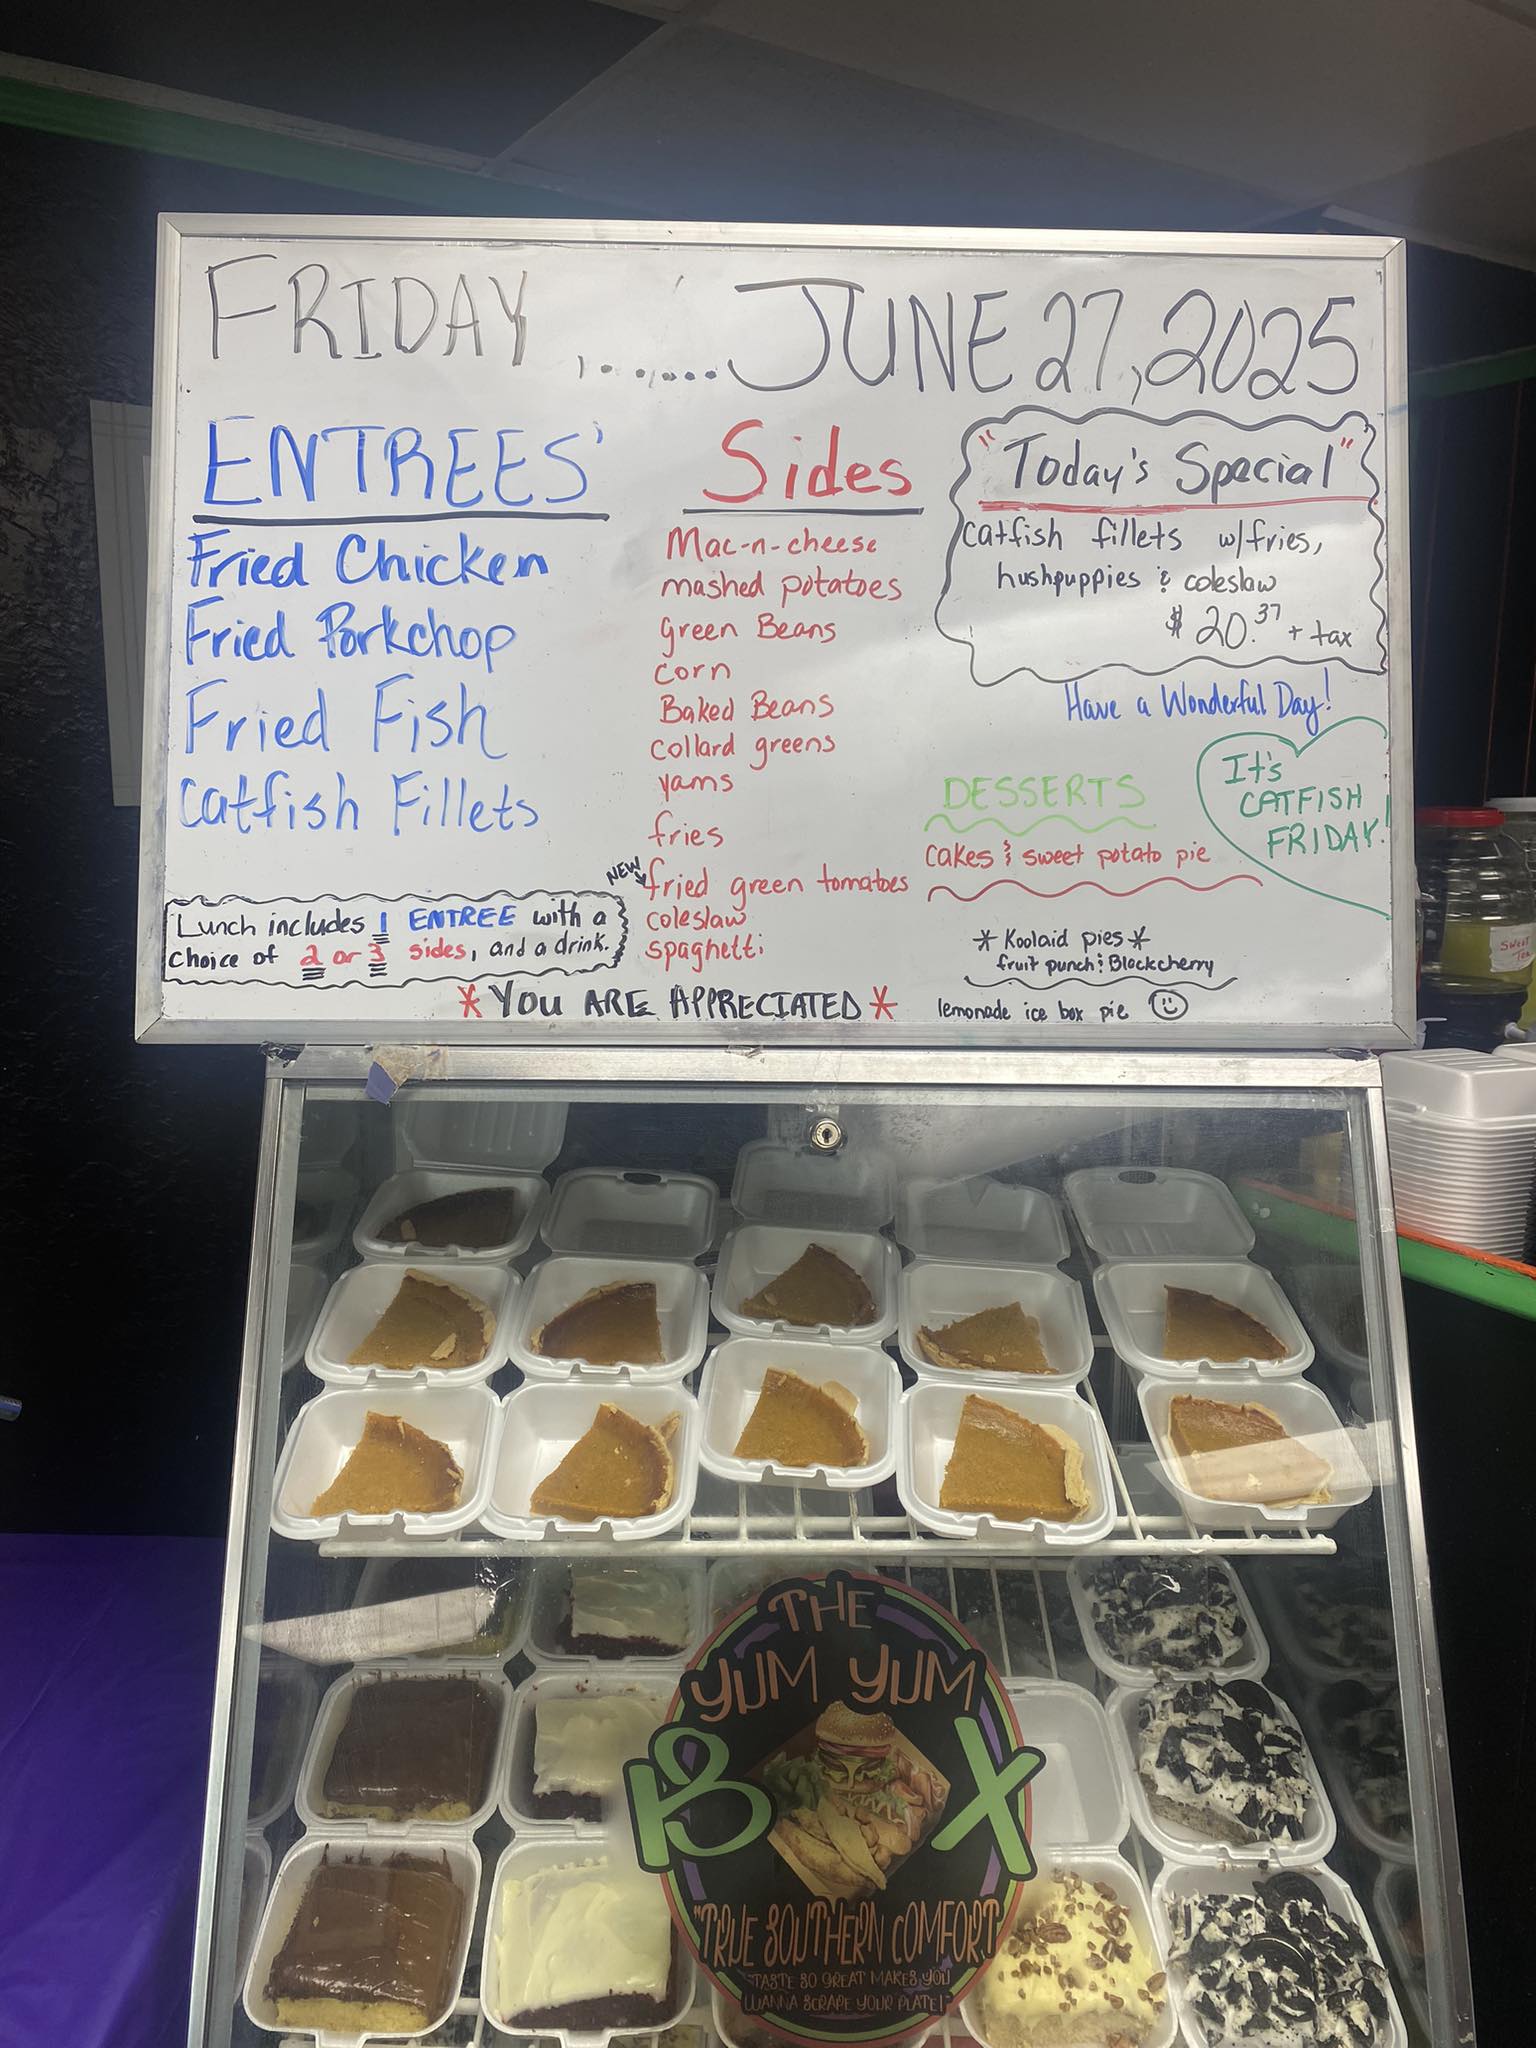 FRIDAY ....... JUNE 27, 2025
ENTREES'
Fried Chicken
Fried Porkchop
Fried Fish
Catfish Fillets
Lunch includes 1 ENTREE with a
choice of 2 or 3 sides, and a drink.
Sides
Mac-n-cheese
mashed potatoes
green Beans
corn
Baked Beans
collard greens
yams
fries
NEW
fried green tomatoes
coleslaw
spaghetti
"Today's Special"
catfish fillets w/fries,
hushpuppies & coleslaw
$20.37 + tax
Have a Wonderful Day!
It's
CATFISH
FRIDAY!
DESSERTS
cakes & sweet potato pie
* Koolaid pies *
fruit punch & Blackcherry
lemonade ice box pie
* YOU ARE APPRECIATED *
SWEET
TEA
THE
YUM YUM
BOX
"TRUE SOUTHERN COMFORT
TASTE SO GREAT MAKES YOU
WANNA SCRAPE YOUR PLATE!"